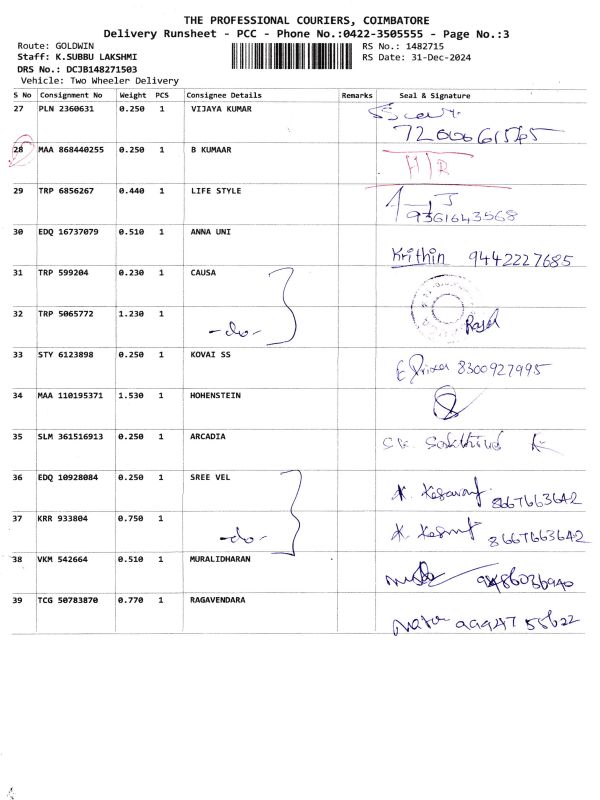 THE PROFESSIONAL COURIERS, COIMBATORE
Delivery Runsheet - PCC - Phone No.:0422-3505555 - Page No.:3
Route: GOLDWIN
RS No.: 1482715
Staff: K.SUBBU LAKSHMI
RS Date: 31-Dec-2024
DRS No.: DCJB148271503
Vehicle: Two Wheeler Delivery
S No Consignment No Weight PCS Consignee Details Remarks Seal & Signature
27 PLN 2360631 0.250 1 VIJAYA KUMAR
28 MAA 868440255 0.250 1 B KUMAAR
29 TRP 6856267 0.440 1 LIFE STYLE 9361643568
30 EDQ 16737079 0.510 1 ANNA UNI Krithin 9442227685
31 TRP 599204 0.230 1 CAUSA
32 TRP 5065772 1.230 1 -do-
33 STY 6123898 0.250 1 KOVAI SS 8300927995
34 MAA 110195371 1.530 1 HOHENSTEIN
35 SLM 361516913 0.250 1 ARCADIA
36 EDQ 10928084 0.250 1 SREE VEL 8667663642
37 KRR 933804 0.750 1 -do- 8667663642
38 VKM 542664 0.510 1 MURALIDHARAN
39 TCG 50783870 0.770 1 RAGAVENDARA